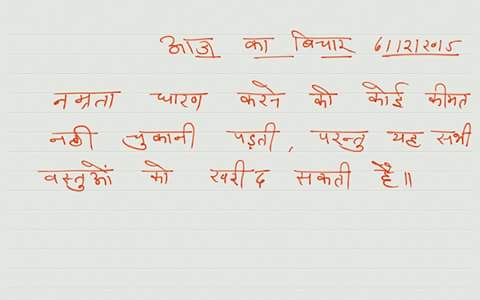 आज का विचार 6/12/2015
नम्रता धारण करने की कोई कीमत
नही चुकानी पड़ती, परन्तु यह सभी
वस्तुओं को खरीद सकती है॥